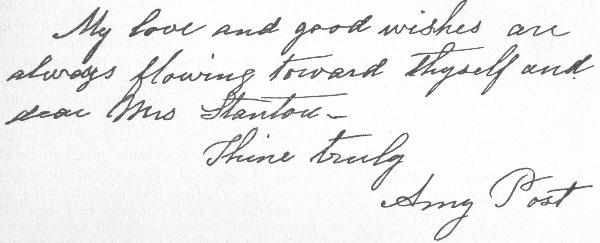 My love and good wishes are
always flowing toward thyself and
dear Mrs Stanton -
Thine truly
Amy Post